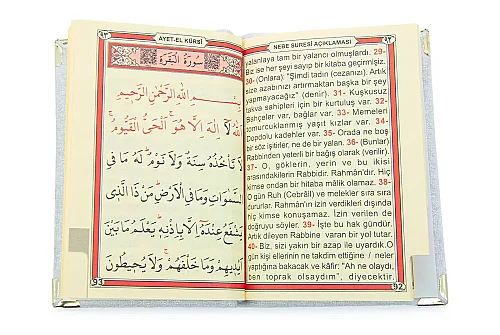 ٩٣
AYET-EL KÜRSİ
سُورَةُ الْبَقَرَةِ
بِسْمِ اللّٰهِ الرَّحْمٰنِ الرَّحِيمِ
اَللّٰهُ لَا اِلٰهَ اِلَّا هُوَ اَلْحَيُّ الْقَيُّومُ
لَا تَأْخُذُهُ سِنَةٌ وَلَا نَوْمٌ لَهُ مَا فِي
السَّمٰوَاتِ وَمَا فِي الْاَرْضِ مَنْ ذَا الَّذِي
يَشْفَعُ عِنْدَهُ اِلَّا بِاِذْنِهِ يَعْلَمُ مَا بَيْنَ
اَيْدِيهِمْ وَمَا خَلْفَهُمْ وَلَا يُحِيطُونَ
93
NEBE SURESİ AÇIKLAMASI
٩٢
yalanlaya tam bir yalancı olmuşlardı. 29-
Biz ise her şeyi sayıp bir kitaba geçirmişiz.
30- (Onlara): "Şimdi tadın (cezanızı). Artık
size azabınızı artırmaktan başka bir şey
yapmayacağız" (denir). 31- Kuşkusuz
takva sahipleri için bir kurtuluş var. 32-
Bahçeler var, bağlar var. 33- Memeleri
tomurcuklanmış yaşıt kızlar var. 34-
Dopdolu kadehler var. 35- Orada ne boş
bir söz işitirler, ne de bir yalan. 36- (Bunlar)
Rabbinden yeterli bir bağış olarak (verilir).
37- O, göklerin, yerin ve bu ikisi
arasındakilerin Rabbidir. Rahmân'dır. Hiç
kimse ondan bir hitaba mâlik olamaz. 38-
O gün Ruh (Cebrâil) ve melekler sıra sıra
dururlar. Rahmân'ın izin verdikleri dışında
hiç kimse konuşamaz. İzin verilen de
doğruyu söyler. 39- İşte bu hak gündür.
Artık dileyen Rabbine varan bir yol tutar.
40- Biz, sizi yakın bir azap ile uyardık.O
gün kişi ellerinin ne takdim ettiğine / neler
yaptığına bakacak ve kâfir: "Ah ne olaydı,
ben toprak olsaydım", diyecektir.
92